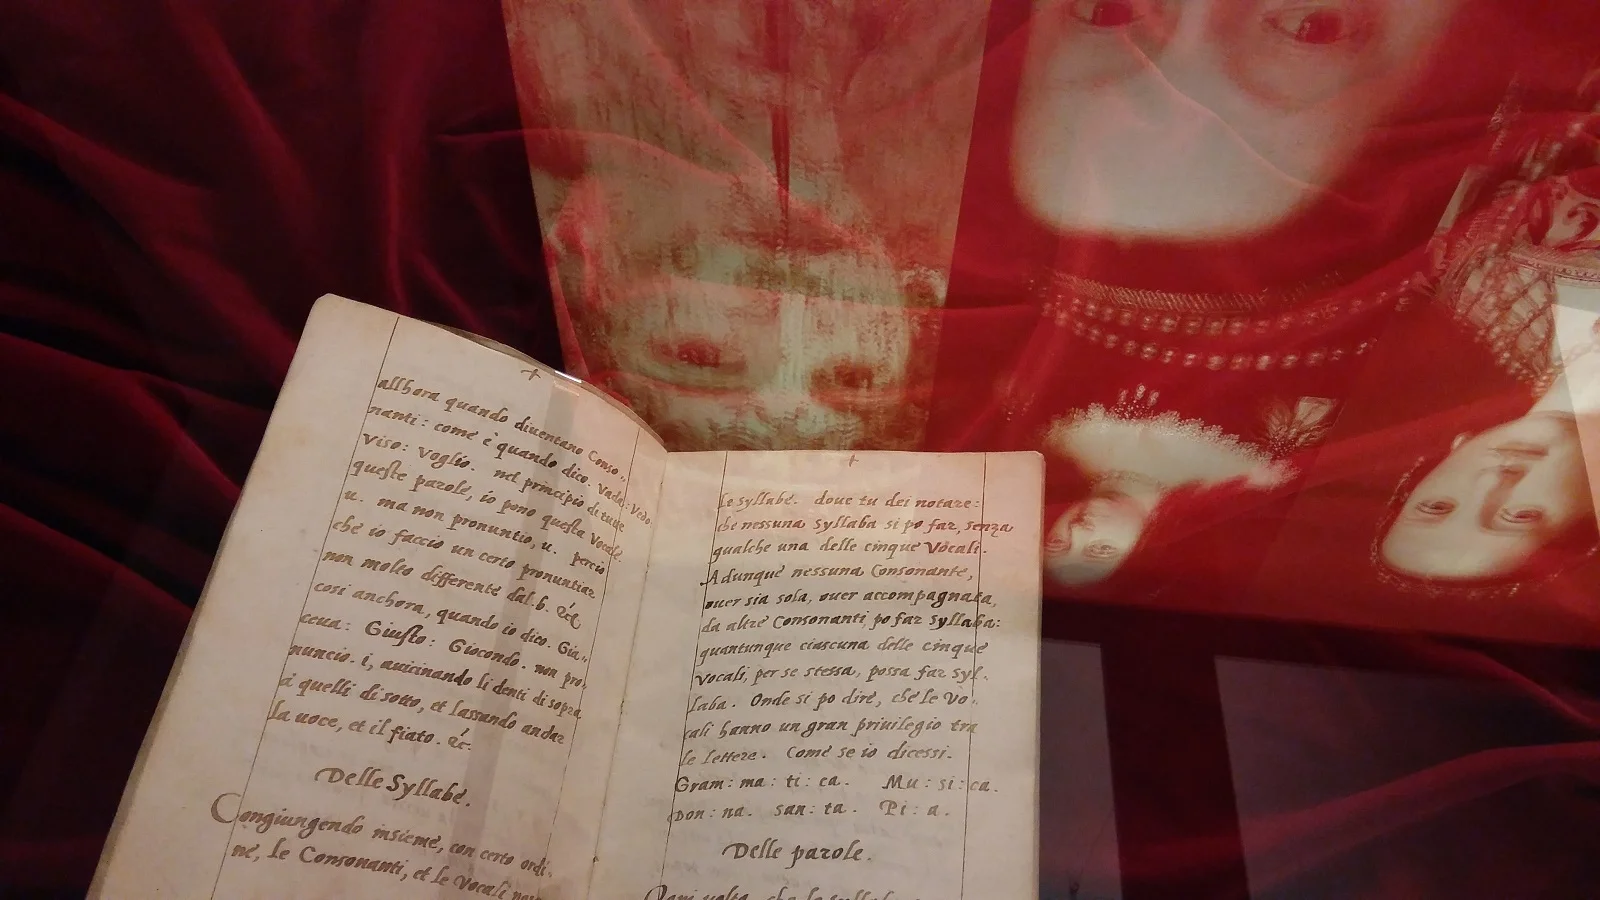 allhora quando diuentano Conso„
nanti: come è quando dico. Vada: Vedo:
Viso: Voglio. nel principio di tutte
queste parole, io pono questa Vocale
u. ma non pronuntio, u. perciò
che io faccio un certo pronuntiar
non molto differente dal. b. &c.
così anchora, quando io dico. Gia„
ceua: Giusto: Giocondo. non pro„
nuncio. i, auicinando li denti di sopra
à quelli di sotto, et lassando andar
la uoce, et il fiato. &c.
Delle Syllabe.
Congiungendo insieme, con certo ordi„
ne, le Consonanti, et le Vocali
le Syllabe. doue tu dei notare:
che nessuna Syllaba si po far, senza
qualche una delle cinque Vocali.
Adunque nessuna Consonante,
ouer sia sola, ouer accompagnata,
da altre Consonanti, po far Syllaba:
quantunque ciascuna delle cinque
Vocali, per se stessa, possa far Syl„
laba. Onde si po dire, che le Vo„
cali hanno un gran priuilegio tra
le lettere. Come se io dicessi.
Gram: ma: ti: ca. Mu: si: ca.
Don: na. san: ta. Pi: a.
Delle parole.